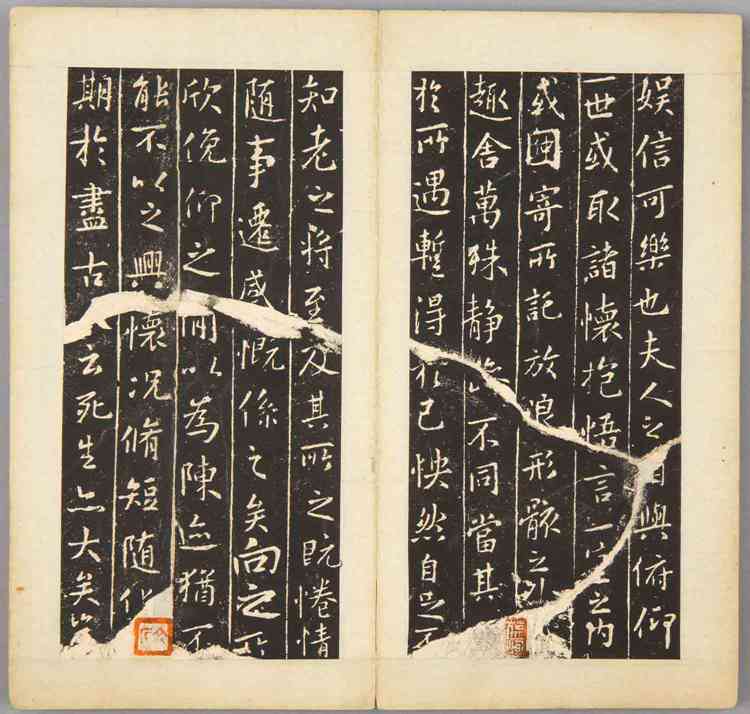 娛信可樂也夫人之相與俯仰
一世或取諸懷抱悟言一室之内
或因寄所託放浪形骸之外
趣舍萬殊静躁不同當其
於所遇蹔得於己怏然自足不
知老之將至及其所之既惓情
随事遷感慨係之矣向之所
欣俛仰之間以為陳迹猶不
能不以之興懷況脩短随化
期於盡古人云死生亦大矣